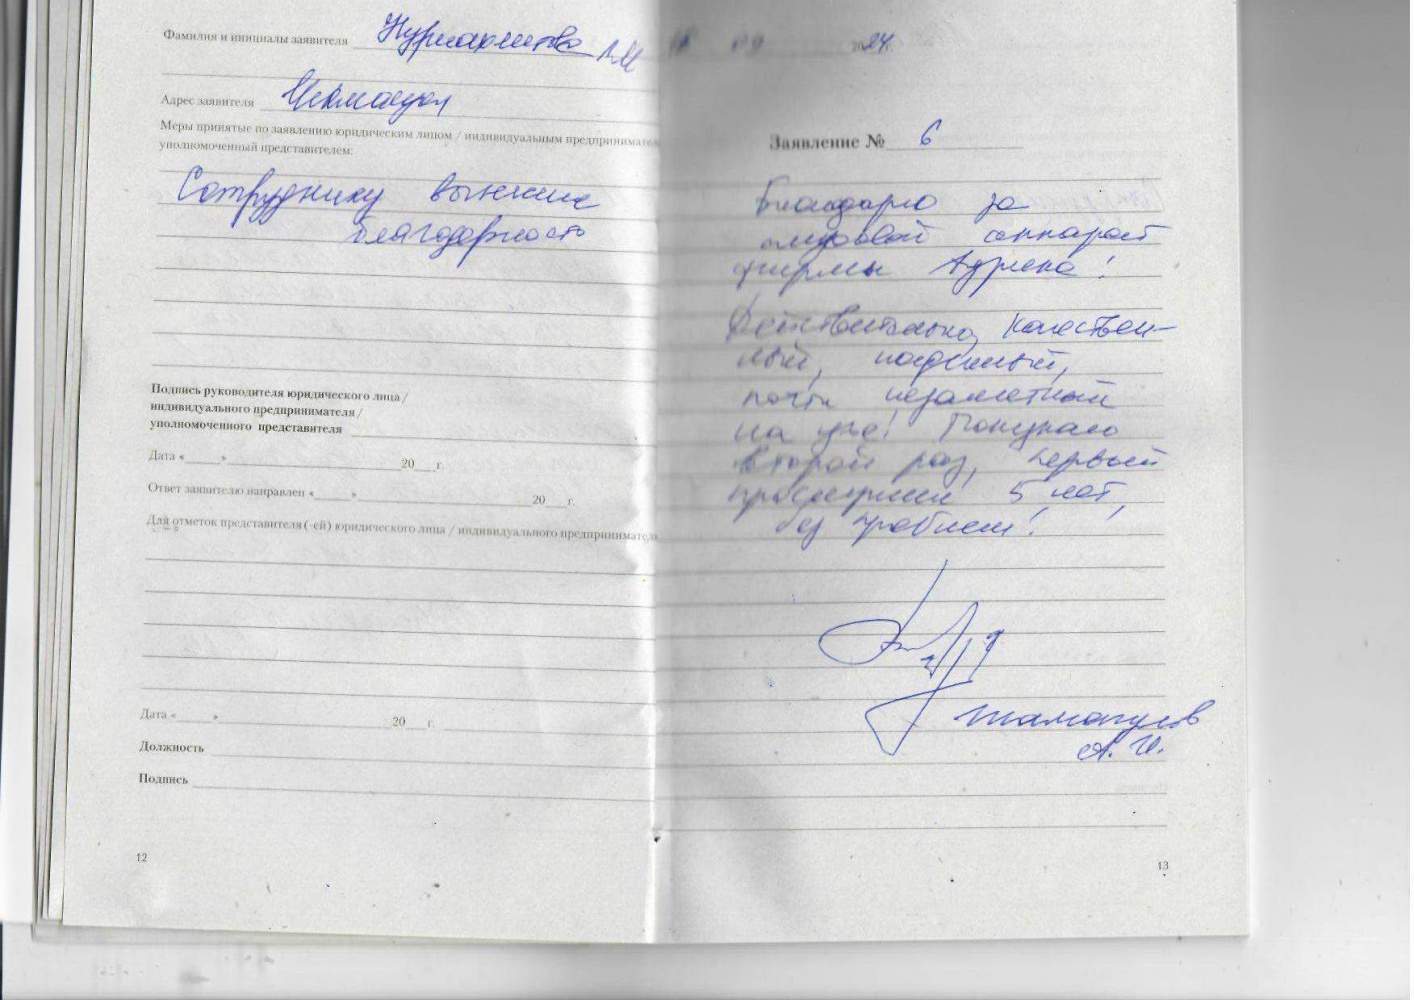 Фамилия и инициалы заявителя
Адрес заявителя
Меры принятые по заявлению юридическим лицом / индивидуальным предпринимател
уполномоченный представителем:
Сотруднику вынесена
благодарность
Подпись руководителя юридического лица /
индивидуального предпринимателя /
уполномоченного представителя
Дата «___»___ 20___г.
Ответ заявителю направлен «___»___ 20___г.
Для отметок представителя (-ей) юридического лица / индивидуального предпринимател
Дата «___»___ 20___г.
Должность
Подпись
12
09 2024 г.
Заявление № 6
Благодарю за
слуховой аппарат
фирмы Аурика!
Действительно, качествен-
ный, надежный,
почти незаметный
на ухе! Покупаю
второй раз, первый
прослужил 5 лет,
без проблем!
А. И.
13